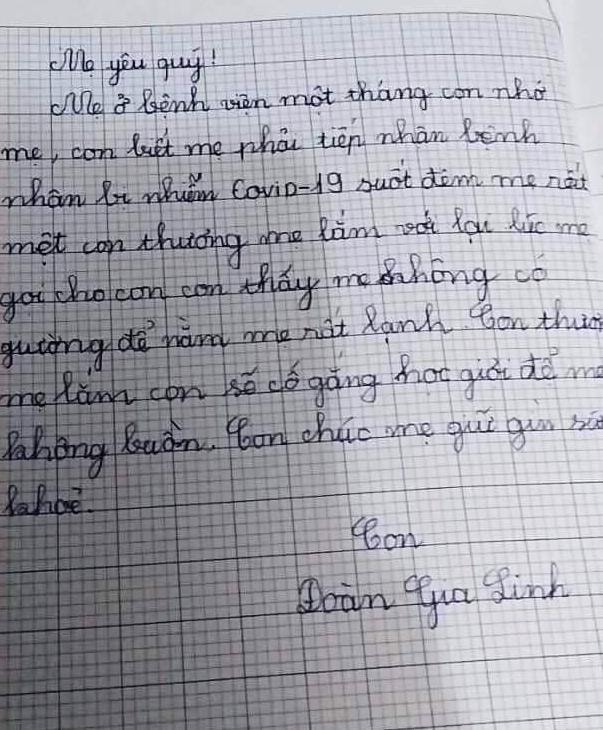 Mẹ yêu quý!
Mẹ ở bệnh viện một tháng con nhớ
mẹ, con biết mẹ phải tiếp nhận bệnh
nhân bị nhiễm Covid-19 suốt đêm mẹ rất
mệt con thương mẹ lắm với lại lúc mẹ
gọi cho con con thấy mẹ không có
giường để nằm mẹ rất lạnh. Con thương
mẹ lắm con sẽ cố gắng học giỏi để mẹ
không buồn. Con chúc mẹ giữ gìn sức
khoẻ.
Con
Đoàn Gia Linh